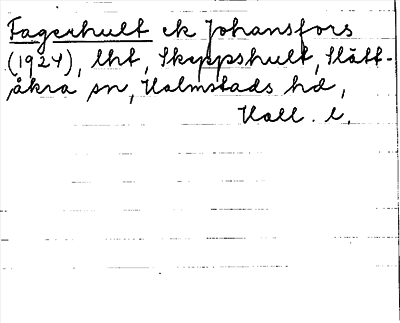 Fagerhult ek Johansfors
(1924), lht, Skeppshult, Slätt-
åkra sn, Halmstads hd,
Hall. l.